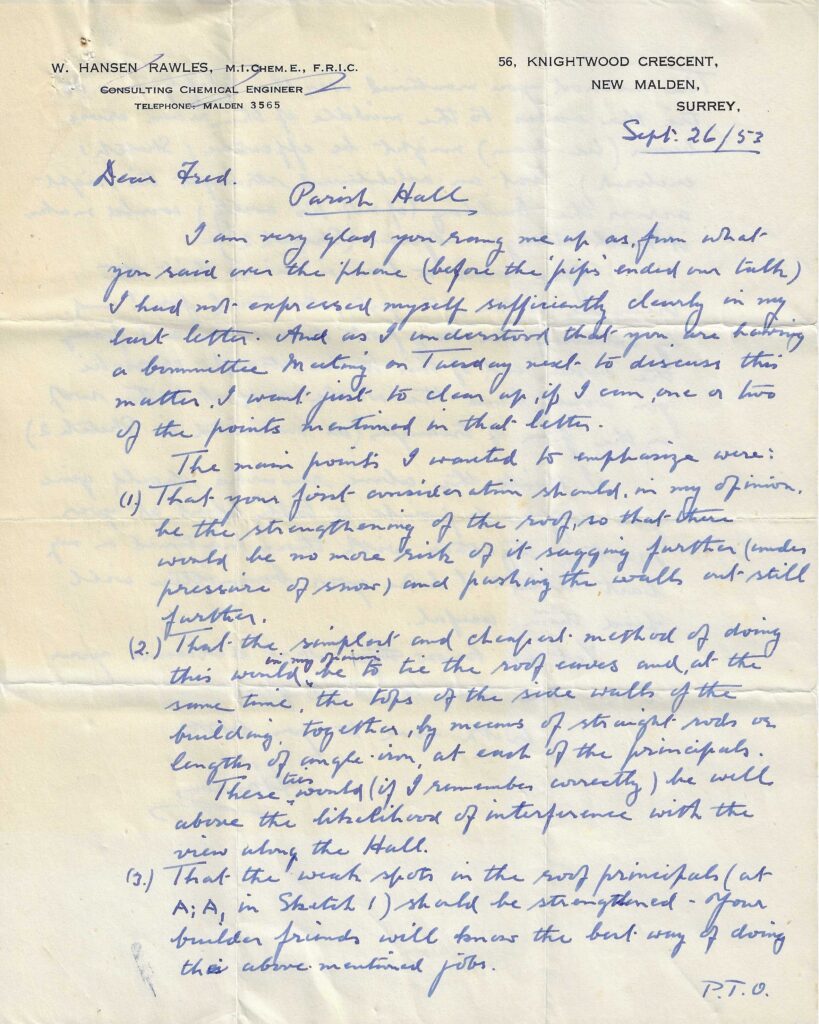 W. HANSEN RAWLES, M.I.CHEM.E., F.R.I.C.
CONSULTING CHEMICAL ENGINEER
TELEPHONE: MALDEN 3565
56, KNIGHTWOOD CRESCENT,
NEW MALDEN,
SURREY,
Sept. 26/53
Dear Fred.
Parish Hall
I am very glad you rang me up as, from what
you said over the 'phone (before the 'pips' ended our talk)
I had not expressed myself sufficiently clearly in my
last letter. And as I understood that you are having
a Committee Meeting on Tuesday next to discuss this
matter, I want just to clear up, if I can, one or two
of the points mentioned in that letter.
The main points I wanted to emphasize were:
(1.) That your first consideration should, in my opinion,
be the strengthening of the roof, so that there
would be no more risk of it sagging further (under
pressure of snow) and pushing the walls out still
further.
(2.) That the simplest and cheapest method of doing
this would in my opinion be to tie the roof eaves and, at the
same time, the tops of the side walls of the
building, together, by means of straight rods or
lengths of angle-iron, at each of the principals.
These ties would (if I remember correctly) be well
above the likelihood of interference with the
view along the Hall.
(3.) That the weak spots in the roof principals (at
A; A, in Sketch 1) should be strengthened - Your
builder friends will know the best way of doing
the above mentioned jobs.
P.T.O.